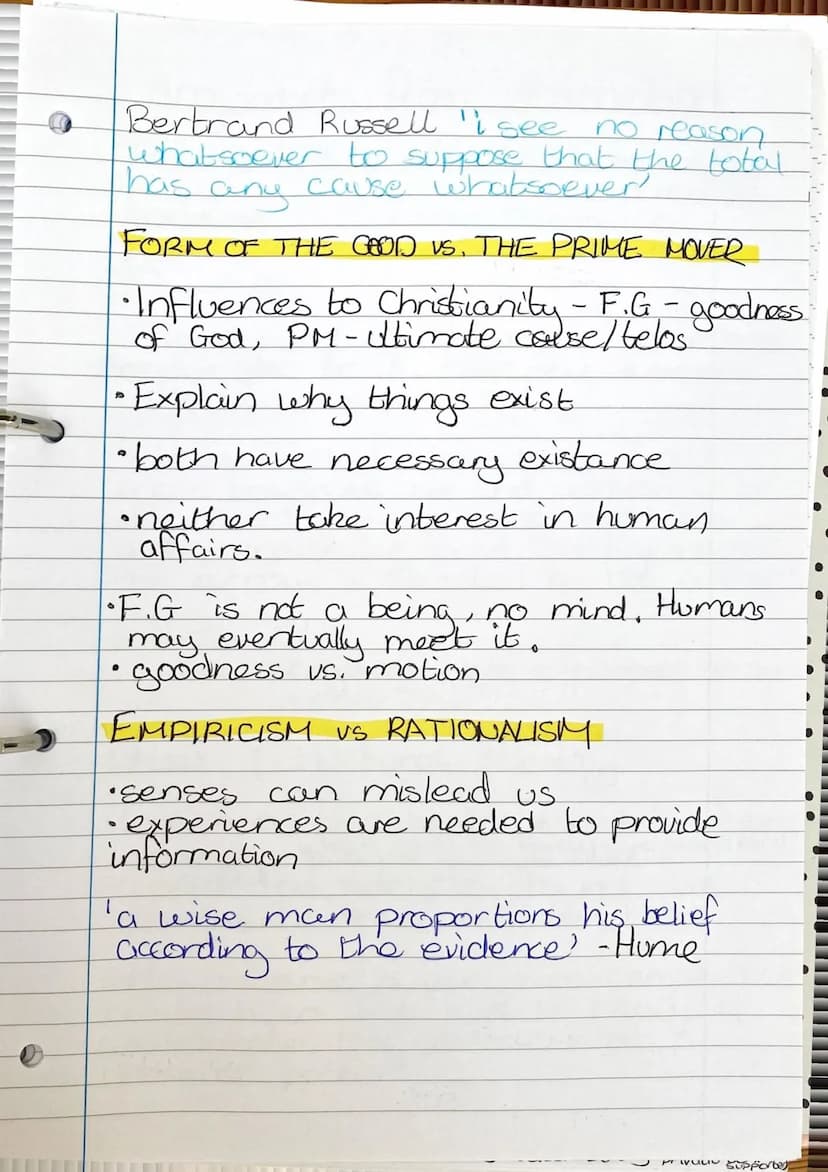 Bertrand Russell 'i see no reason
whatsoever to suppose that the total
has any cause whatsoever'
FORM OF THE GOOD VS. THE PRIME MOVER
·Influences to Christianity - F.G - goodness
of God, PM - ultimate cause/telos
·Explain why things exist
·both have necessary existance
·neither take interest in human
affairs.
·F.G is not a being, no mind. Humans
may eventually meet it.
·goodness vs. motion
EMPIRICISM VS RATIONALISM
·senses can mislead us
·experiences are needed to provide
information
'a wise man proportions his belief
according to the evidence' -Hume
supported